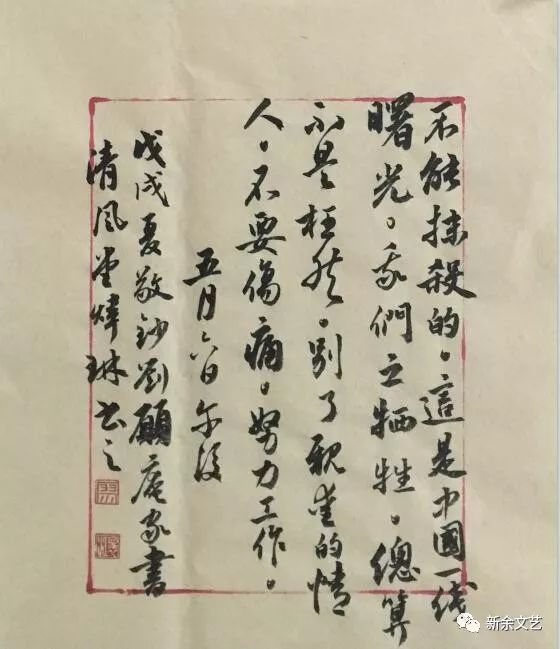 不能抹殺的。這是中國一线
曙光。我們之牺牲。總算
不是枉然。别了親愛的情
人。不要傷痛。努力工作。
五月六日午後
戊戌夏敬鈔劉願庵家書
清風堂煒琳书之
新余文艺